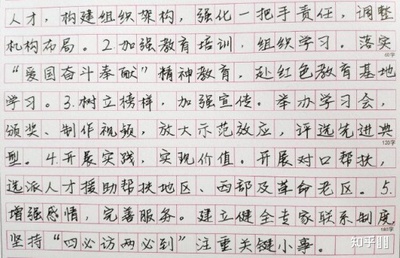 人才，构建组织架构，强化一把手责任，调整
机构布局。2.加强教育培训，组织学习。落实
“爱国奋斗奉献”精神教育，赴红色教育基地
学习。3.树立榜样，加强宣传。举办学习会，
颁奖、制作视频，放大示范效应，评选先进典
120字
型。4.开展实践，实现价值。开展对口帮扶，
选派人才援助帮扶地区、西部及革命老区。5.
增强感情，完善服务。建立健全专家联系制度
坚持“四必访两必到”注重关键小事。
知乎